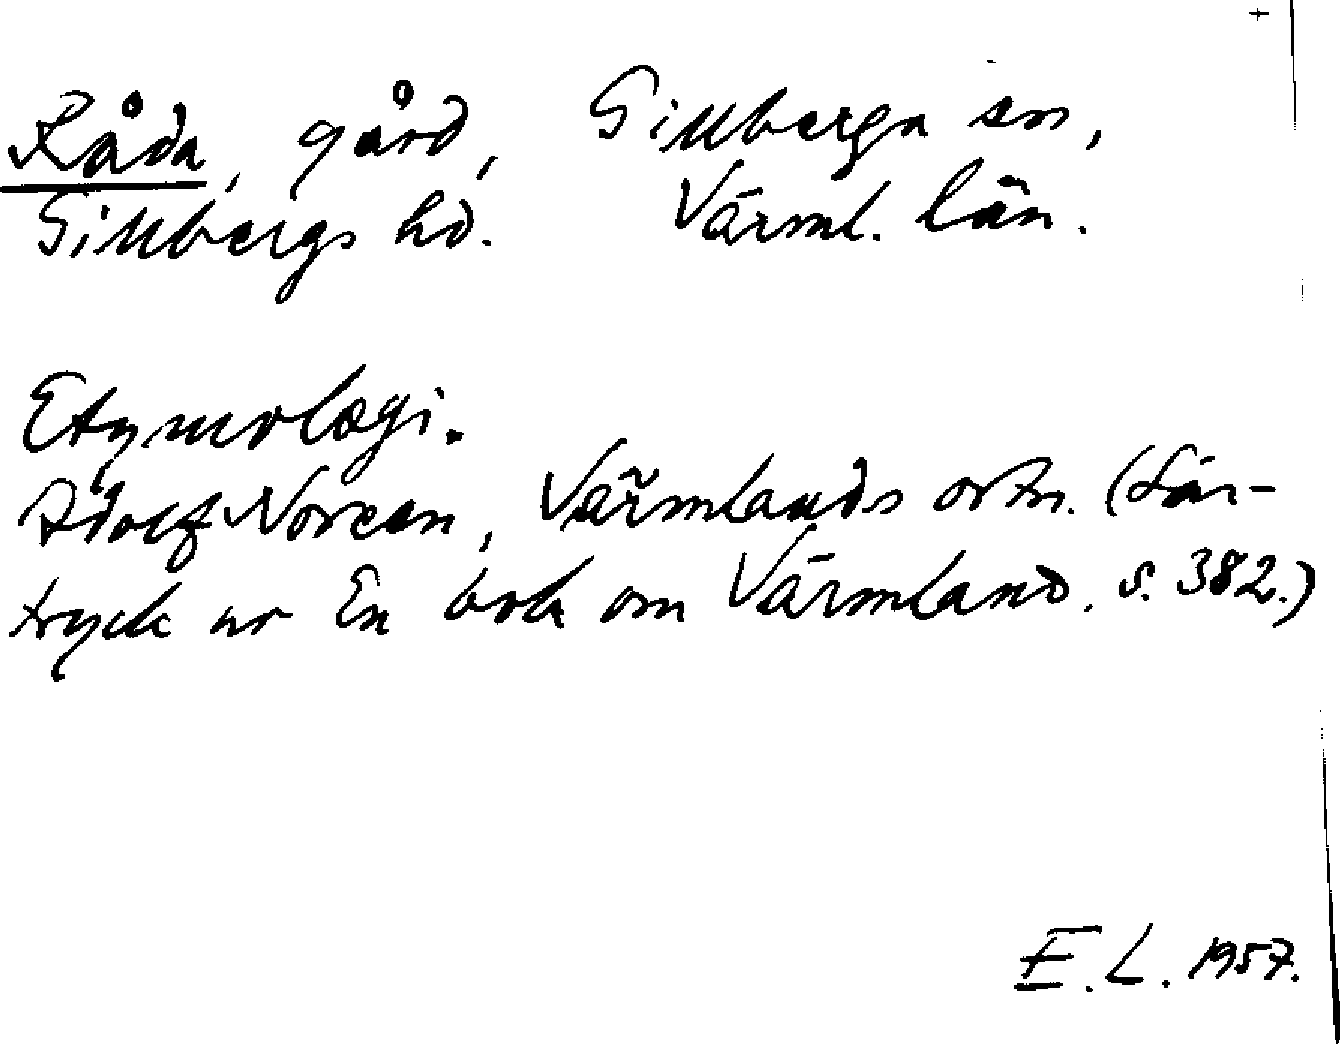 Råda, gård, Gillberga sn,
Gillbergs hd. Värml. län.
Etymologi.
Adolf Noreen, Värmlands ortn. (Sär-
tryck ur En bok om Värmland. s. 382.)
E.L. 1957.